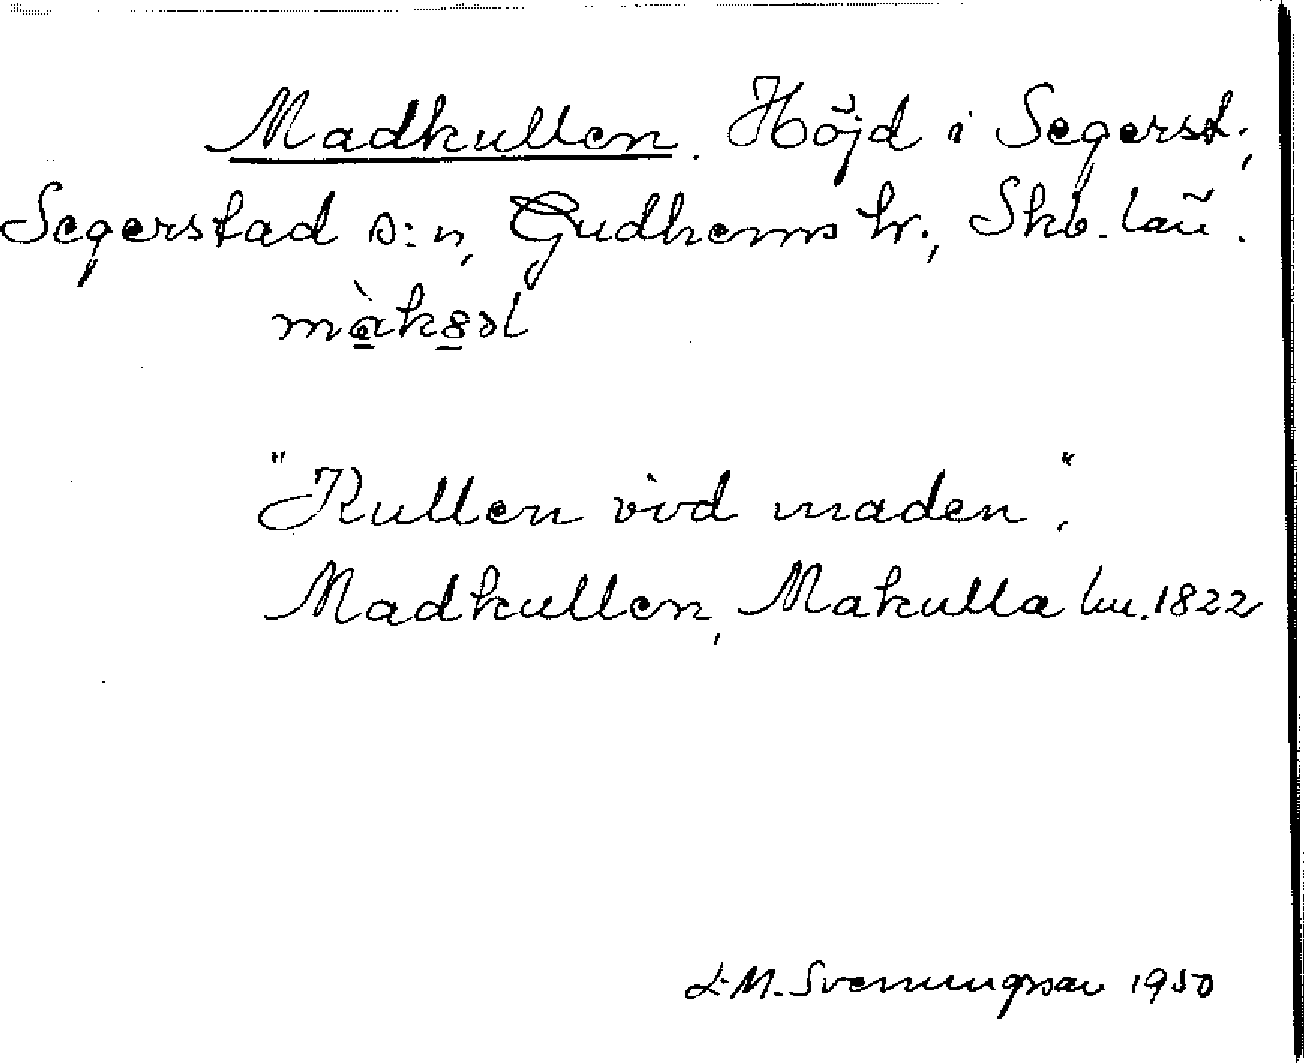 Madkullen. Höjd i Segerst.,
Segerstad s:n, Gudhems hr., Skb. län.
màk8əl
"Kullen vid maden".
Madkullen, Makulla lm. 1822
L.M. Svenungsson 1950